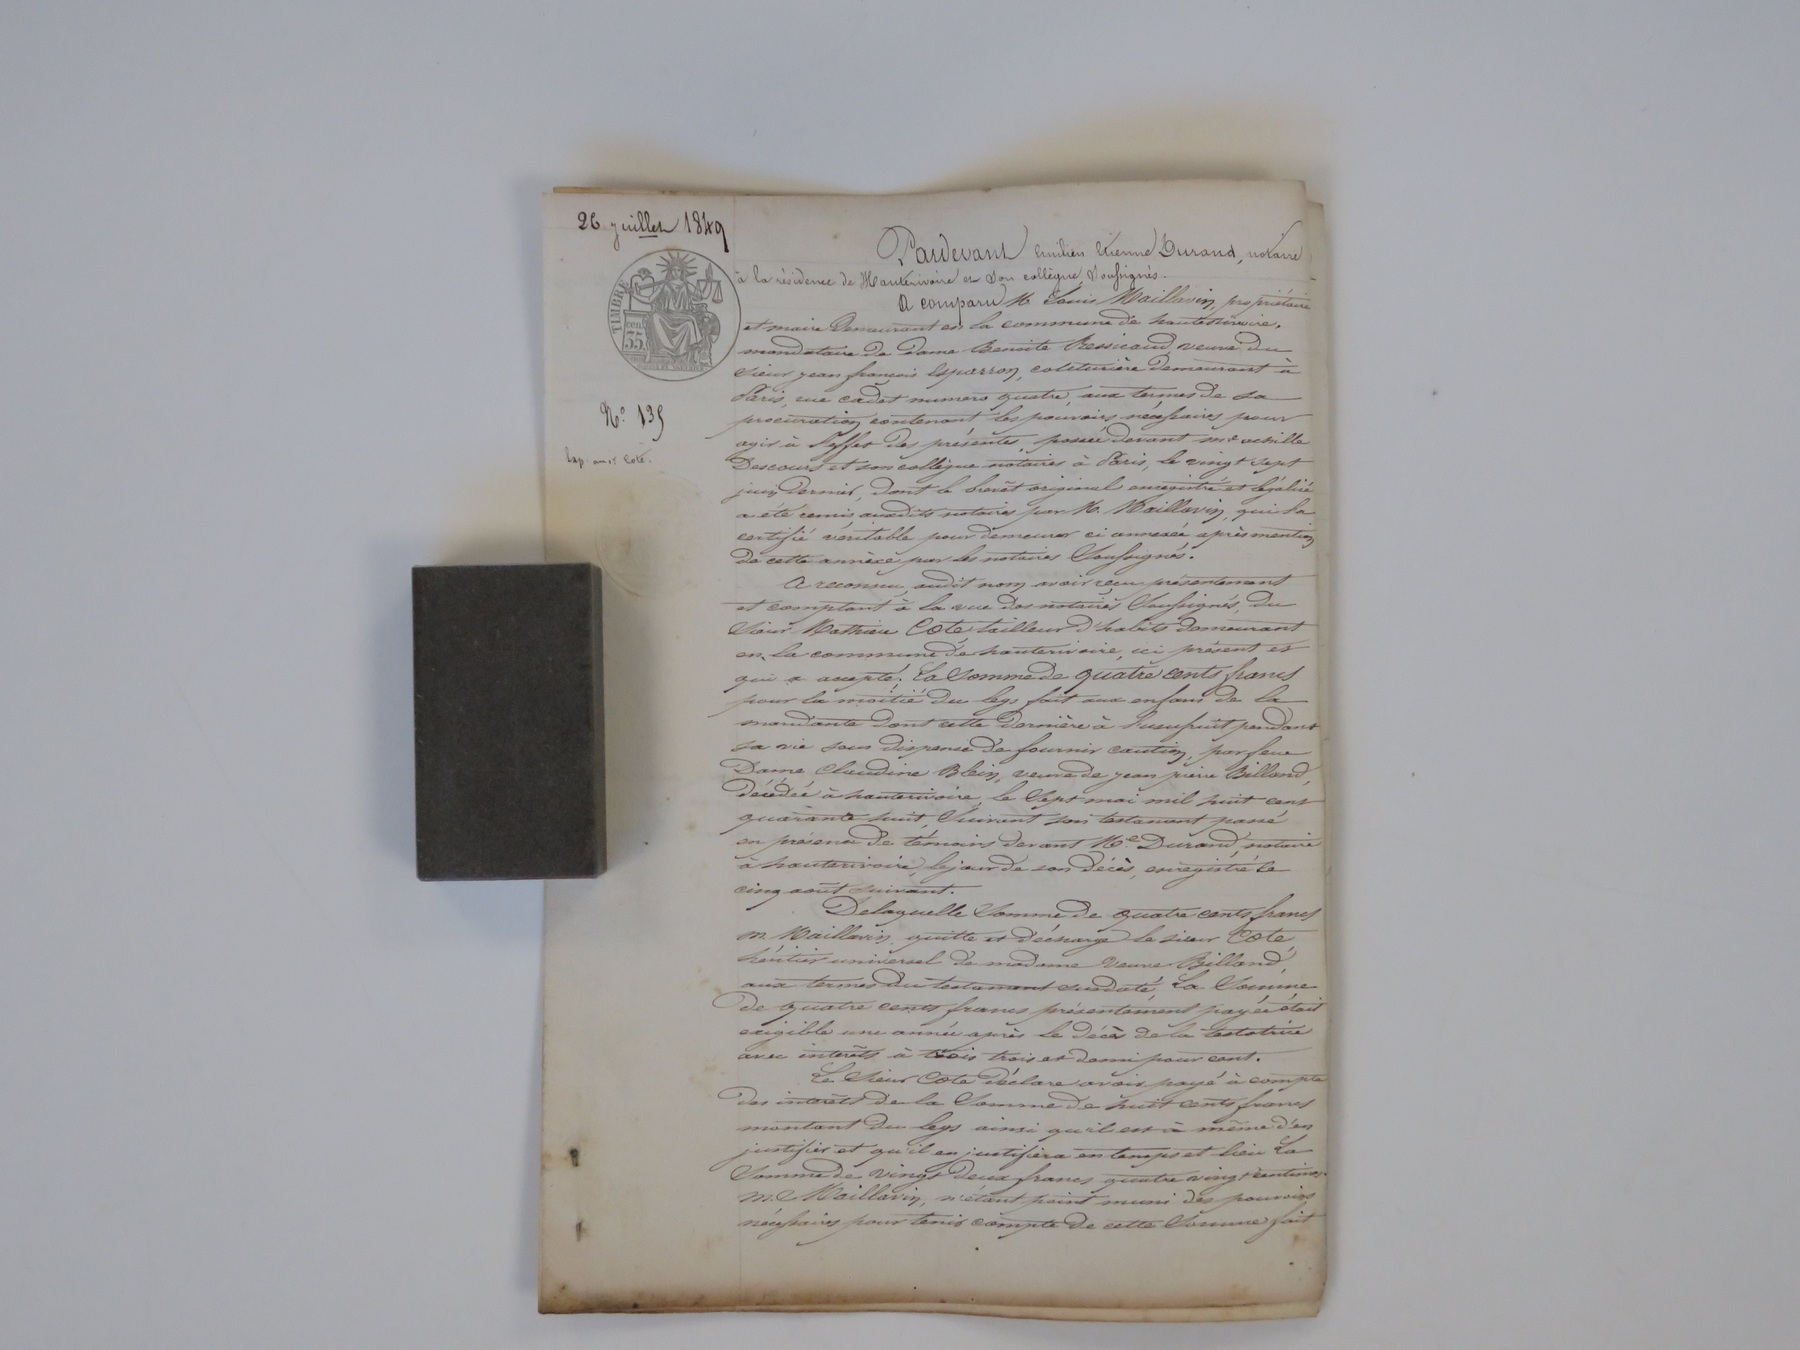 26 juillet 1849
TIMBRE
cen
35
No. 135
Exp. à mr Cote.
Pardevant Emilien Etienne Durand, notaire
à la résidence de Hauterivoire et son collègue, Soussignés.
A comparu M. Louis Maillavin, propriétaire
et maire demeurant en la commune de hauterivoire,
mandataire de Dame Benoite Ressicaud, veuve du
sieur jean françois Esparron, couturière demeurant à
Paris, rue cadet numero quatre, aux termes de sa
procuration contenant les pouvoirs nécessaires pour
agir à l'effet des présentes, passée devant me achille
Descours et son collègue notaires à Paris, le vingt sept
juin dernier, dont le brevet original enregistré et légalisé
a été remis auxdits notaires par M. Maillavin, qui l'a
certifié véritable pour demeurer ci annexée après mention
de cette annèxe par les notaires Soussignés.
A reconnu, audit nom avoir reçu présentement
et comptant à la vue des notaires Soussignés, du
Sieur Mathieu Cote tailleur d'habits demeurant
en la commune de hauterivoire, ici présent et
qui a accepté; La Somme de quatre cents francs
pour la moitié du legs fait aux enfans de la
mandante dont cette dernière à l'usufruit pendant
sa vie sous dispense de fournir caution, par feue
Dame Claudine Blein, veuve de jean pierre Billand,
décédée à hauterivoire, le Sept mai mil huit cent
quarante huit, Suivant son testament passé
en présence de témoins devant Me Durand, notaire
à hauterivoire, le jour de son décès, enregistré le
cinq août suivant.
De laquelle Somme de quatre cents francs
m. Maillavin, quitte et décharge le sieur Cote
héritier universel de madame veuve Billand,
aux termes du testament susdaté, La Somme
de quatre cents francs présentement payée était
exigible une année après le décès de la testatrice
avec intérêts à trois et demi pour cent.
Le Sieur Cote déclare avoir payé à compte
des intérêts de la Somme de huit cents francs
montant du legs ainsi qu'il est à même d'en
justifier et qu'il en justifiera en temps et lieu La
Somme de vingt deux francs quatre vingt centimes
M. Maillavin, n'étant point muni des pouvoirs
nécessaires pour tenir compte de cette Somme fait